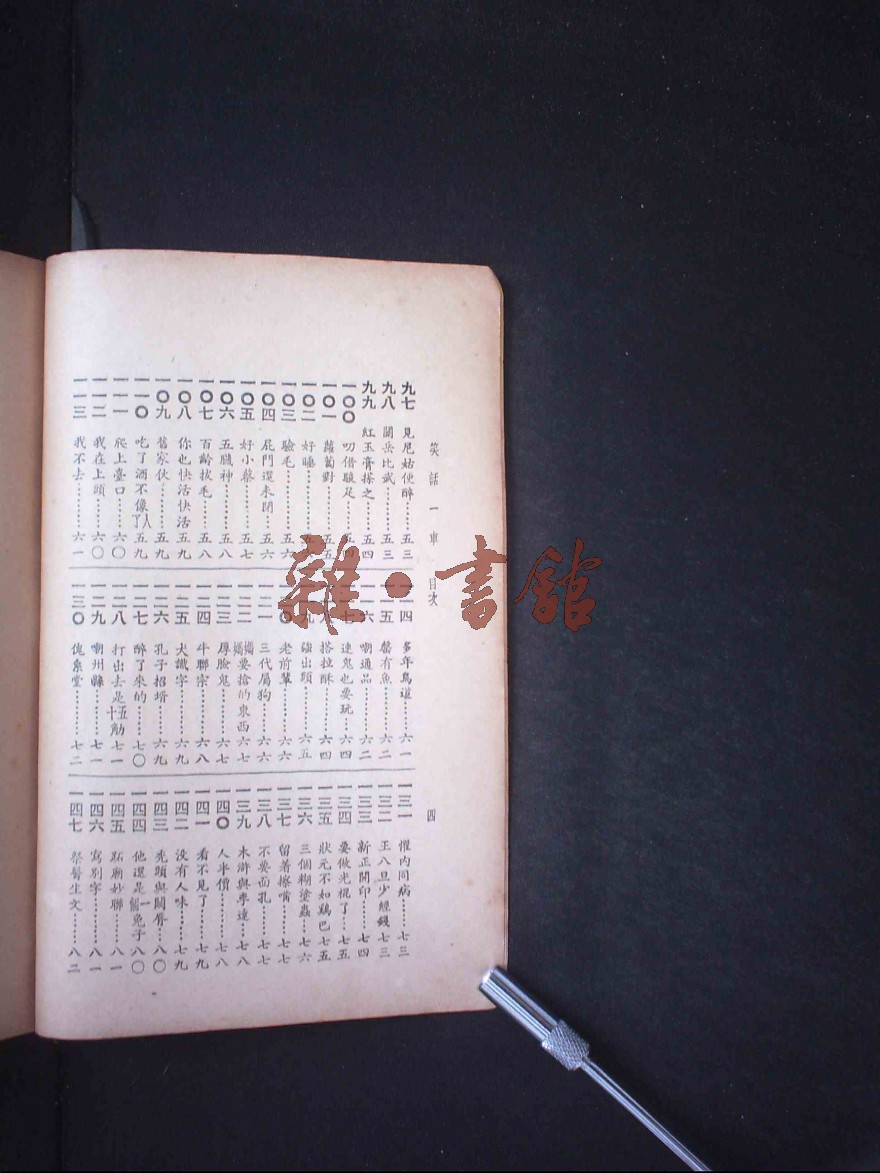 笑話一車 目次 四
九七 見尼姑便醉……五三
九八 關岳比武……五三
九九 紅玉膏搽之……五四
一〇〇 叨借駿足……五四
一〇一 蘿蔔對……五五
一〇二 好睡……五
一〇三 驗毛……五六
一〇四 屁門還未開……五六
一〇五 好小蔡……五七
一〇六 五臟神……五八
一〇七 百齡拔毛……五八
一〇八 你也快活快活 五九
一〇九 舊家伙……五九
一一〇 吃了酒不像人了 五九
一一一 爬上臺口……六〇
一一二 我在上頭……六〇
一一三 我不去……六一
一一四 多年鳥道……六一
一一五 有魚……六二
一一六 嘲通品……六二
一一七 連鬼也要玩……六四
一一八 搭拉酥……六四
一一九 強出頭……六五
一二〇 老前輩……六六
一二一 三代屬狗……六六
一二二 媽媽要捨的東西 六七
一二三 厚臉鬼……六七
一二四 牛聯宗……六八
一二五 犬識字……六九
一二六 孔子招壻……六九
一二七 醉了來的……七〇
一二八 打出去是十五觔 七一
一二九 嘲州縣……七一
一三〇 愧系堂……七二
一三一 懼內同病……七三
一三二 王八旦少經錢 七三
一三三 新正開印……七四
一三四 要做光棍了……七五
一三五 狀元不如鷄巴 七五
一三六 三個糊塗蟲……七六
一三七 留着擦嘴……七七
一三八 不要面孔……七七
一三九 水滸與李逵……七八
一四〇 人半價……七八
一四一 看不見了……七九
一四二 没有人味……七九
一四三 禿頭與關脣……八〇
一四四 他還是個一兔子 八〇
一四五 廟妙聯……八一
一四六 寫別字……八一
一四七 祭醫生文……八二
雜·書館